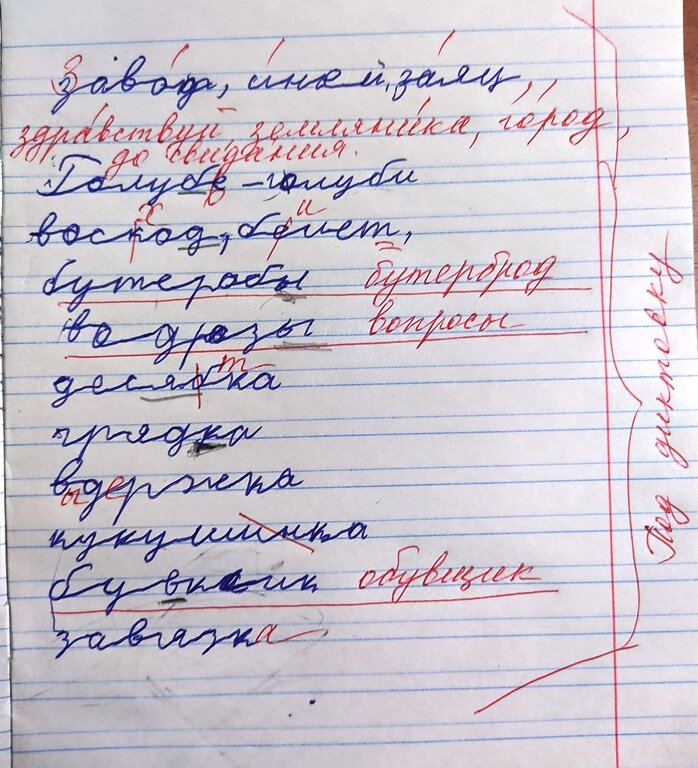 Завод, иней, заяц,
здравствуй, земляника, город,
до свидания.
Голубь - голуби
х и
воскод, боист,
бутеробы бутерброд
водрозы вопросы
т
десядка
грядка
выдержка
кукушинка
бувксик обувщик
завязка
Под диктовку